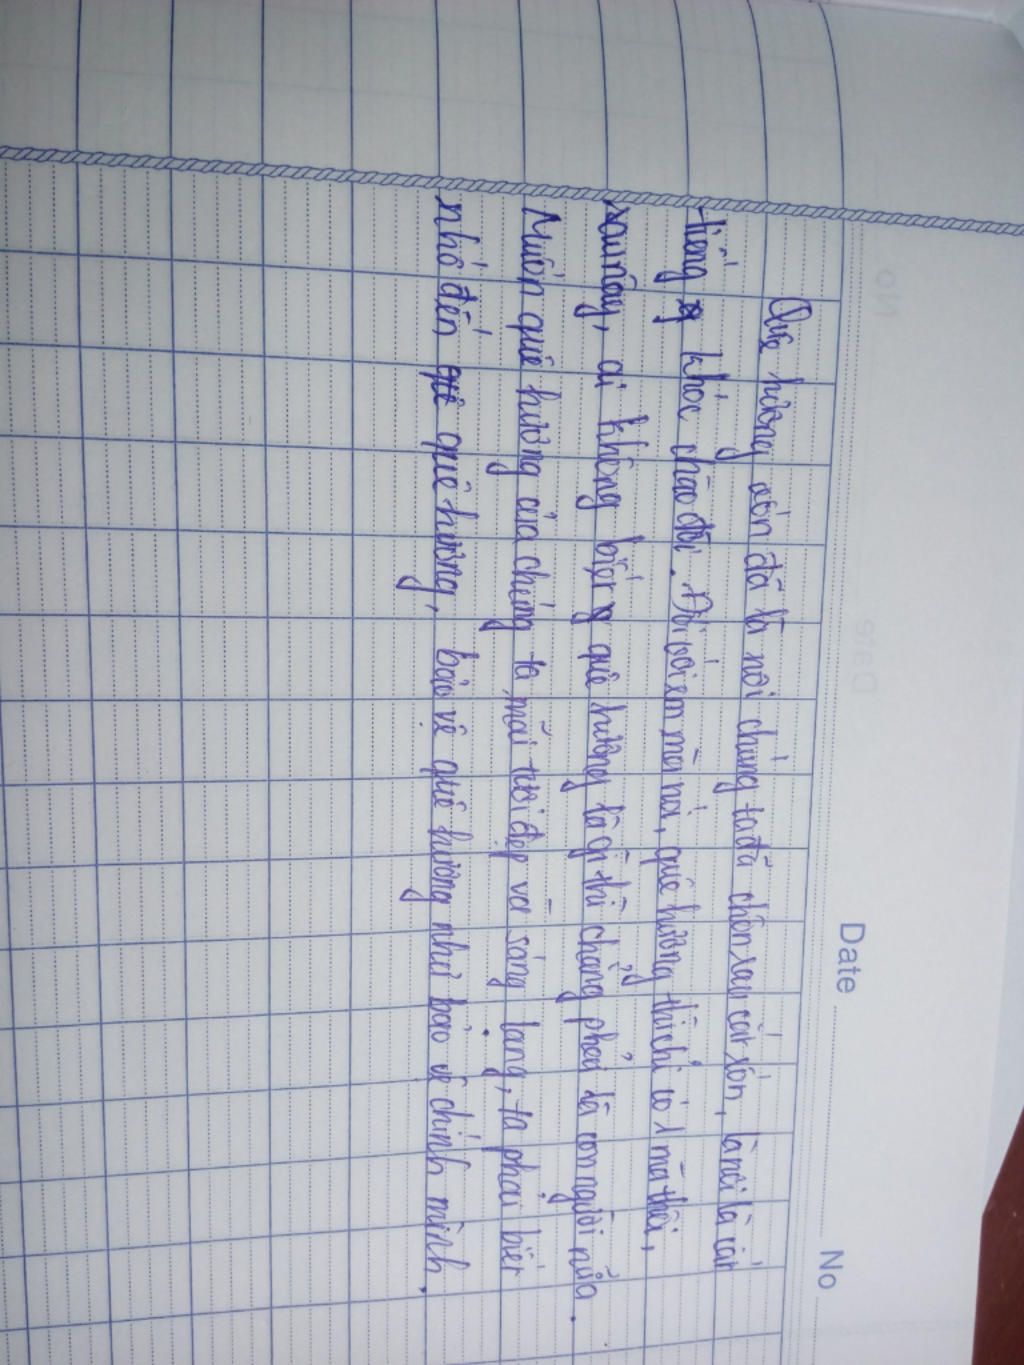 Date No
Quê hương vốn đã là nơi chúng ta đã chôn rau cắt rốn, là nơi là cất
tiếng khóc chào đời. Đối với em mà nói, quê hương thì chỉ có 1 mà thôi,
sau này, ai không biết quê hương là gì thì chẳng phải là con người nữa.
Muốn quê hương của chúng ta mãi tươi đẹp và sáng lạng, ta phải biết
nhớ đến quê hương, bảo vệ quê hương như bảo vệ chính mình.